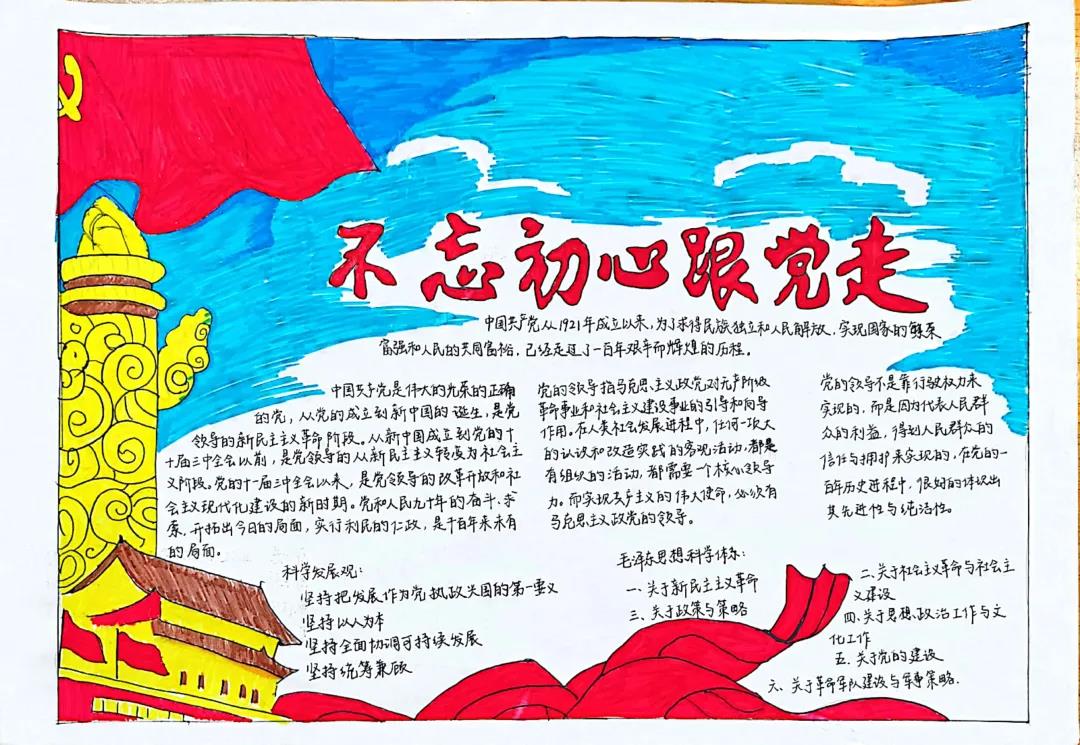 不忘初心跟党走
中国共产党从1921年成立以来,为了求得民族独立和人民解放,实现国家的繁荣
富强和人民的共同富裕,已经走过了一百年艰辛而辉煌的历程。
中国共产党是伟大的光荣的正确
的党,从党的成立到新中国的诞生,是党
领导的新民主主义革命阶段。从新中国成立到党的十
一届三中全会以前,是党领导的从新民主主义转变为社会主
义阶段。党的十一届三中全会以来,是党领导的改革开放和社
会主义现代化建设的新时期。党和人民九十年的奋斗、求
索,开拓出今日的局面,实行利民的仁政,是千百年来未有
的局面。
党的领导指马克思主义政党对无产阶级
革命事业和社会主义建设事业的引导和向导
作用。在人类社会发展进程中,任何一项大
的认识和改造实践的客观活动,都是
有组织的活动,都需要一个核心领导
力。而实现共产主义的伟大使命,必须有
马克思主义政党的领导。
党的领导不是靠行驶权力来
实现的,而是因为代表人民群
众的利益,得到人民群众的
信任与拥护来实现的,在党的一
百年历史进程中,很好的体现出
其先进性与纯洁性。
科学发展观:
坚持把发展作为党执政兴国的第一要义
坚持以人为本
坚持全面协调可持续发展
坚持统筹兼顾
毛泽东思想科学体系:
一、关于新民主主义革命
二、关于社会主义革命与社会主
义建设
三、关于政策与策略
四、关于思想政治工作与文
化工作
五、关于党的建设
六、关于革命军队建设与军事策略.